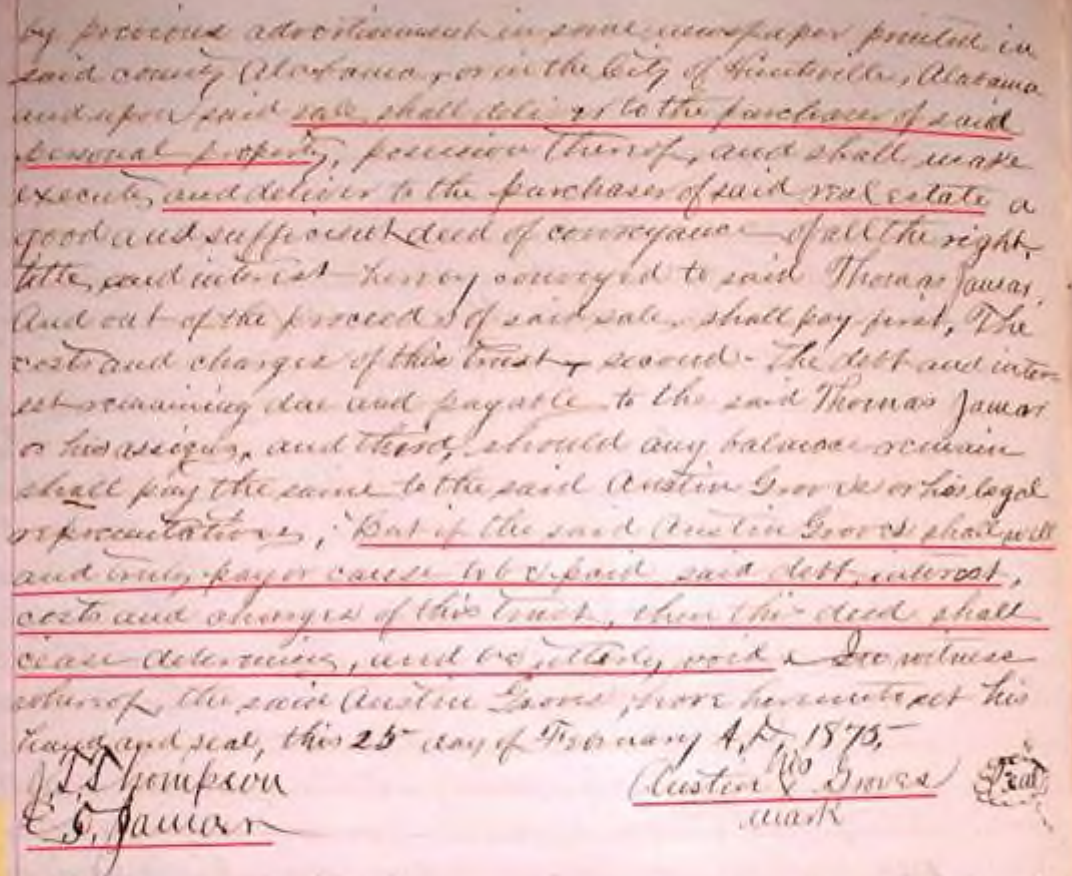 by previous advertisement in some newspaper printed in
said county Alabama, or in the City of Huntsville, Alabama
and upon said sale, shall deliver to the purchaser of said
personal property, possession thereof, and shall make
execute, and deliver to the purchaser of said real estate a
good and sufficient deed of conveyance of all the right,
title, and interest hereby conveyed to said Thomas Jamar.
And out of the proceeds of said sale, shall pay first, The
costs and charges of this trust, second - The debt and inter-
est remaining due and payable to the said Thomas Jamar
or his assigns, and third, should any balance remain
shall pay the same to the said Austin Groves or his legal
representatives; But if the said Austin Groves shall well
and truly pay or cause to be paid said debt, interest,
costs and charges of this trust, then this deed shall
cease determine, and be utterly void. In witness
whereof, the said Austin Groves, have hereunto set his
hand and seal, this 25 day of February A.D. 1875.
J.L. Thompson his
E.T. Jamar Austin X Groves Seal
mark